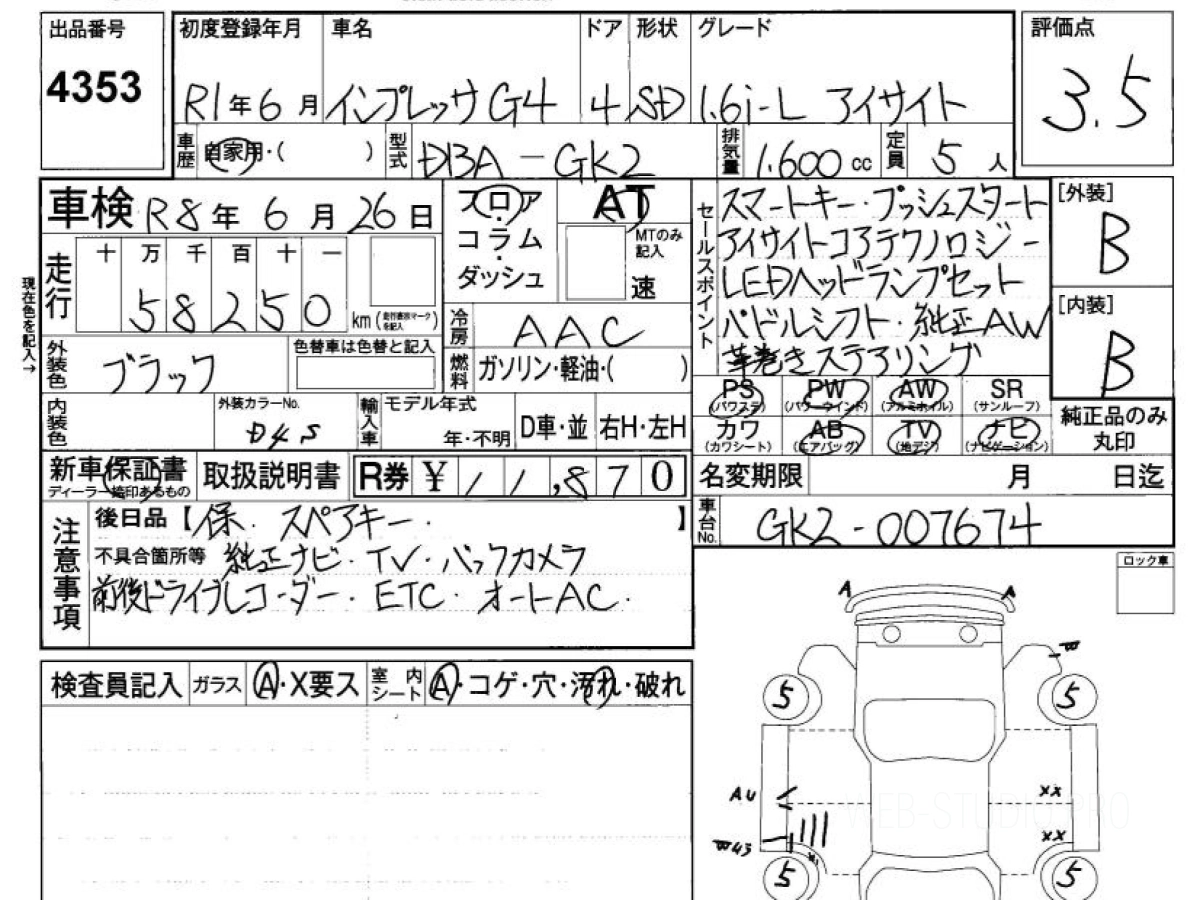 出品番号
4353
初度登録年月 車名 ドア 形状 グレード
R1年6月 インプレッサG4 4 SD 1.6i-L アイサイト
評価点
3.5
車歴 自家用・( ) 型式 DBA-GK2 排気量 1.600cc 定員 5人
車検 R8年6月26日
フロア
コラム
・
ダッシュ
AT
MTのみ
記入
速
セールスポイント
スマートキー・プッシュスタート
アイサイトコアテクノロジー
LEDヘッドランプセット
パドルシフト・純正AW
革巻きステアリング
[外装]
B
[内装]
B
現在色を記入→
走行
十 万 千 百 十 一
58250
km(走行表示マークを記入)
冷房 AAC
燃料 ガソリン・軽油・( )
外装色 ブラック
色替車は色替と記入
内装色
外装カラーNo.
D4S
輸入車 モデル年式
年・不明
D車・並 右H・左H
PS (パワステ) PW (パワーウインド) AW (アルミホイル) SR (サンルーフ)
カワ (カワシート) AB (エアバッグ) TV (地デジ) ナビ (ナビゲーション)
純正品のみ
丸印
新車保証書
ディーラー捺印あるもの
取扱説明書
R券 ¥11,870
名変期限 月 日迄
車台No. GK2-007674
注意事項
後日品【保. スペアキー. 】
不具合箇所等 純正ナビ・TV・バックカメラ
前後ドライブレコーダー・ETC・オートAC.
ロック車
検査員記入 ガラス A・X要ス 室内シート A・コゲ・穴・汚れ・破れ
A A
W
5 5
AU
XX
W43
XX
5 5
WEB-STUDIO.PRO